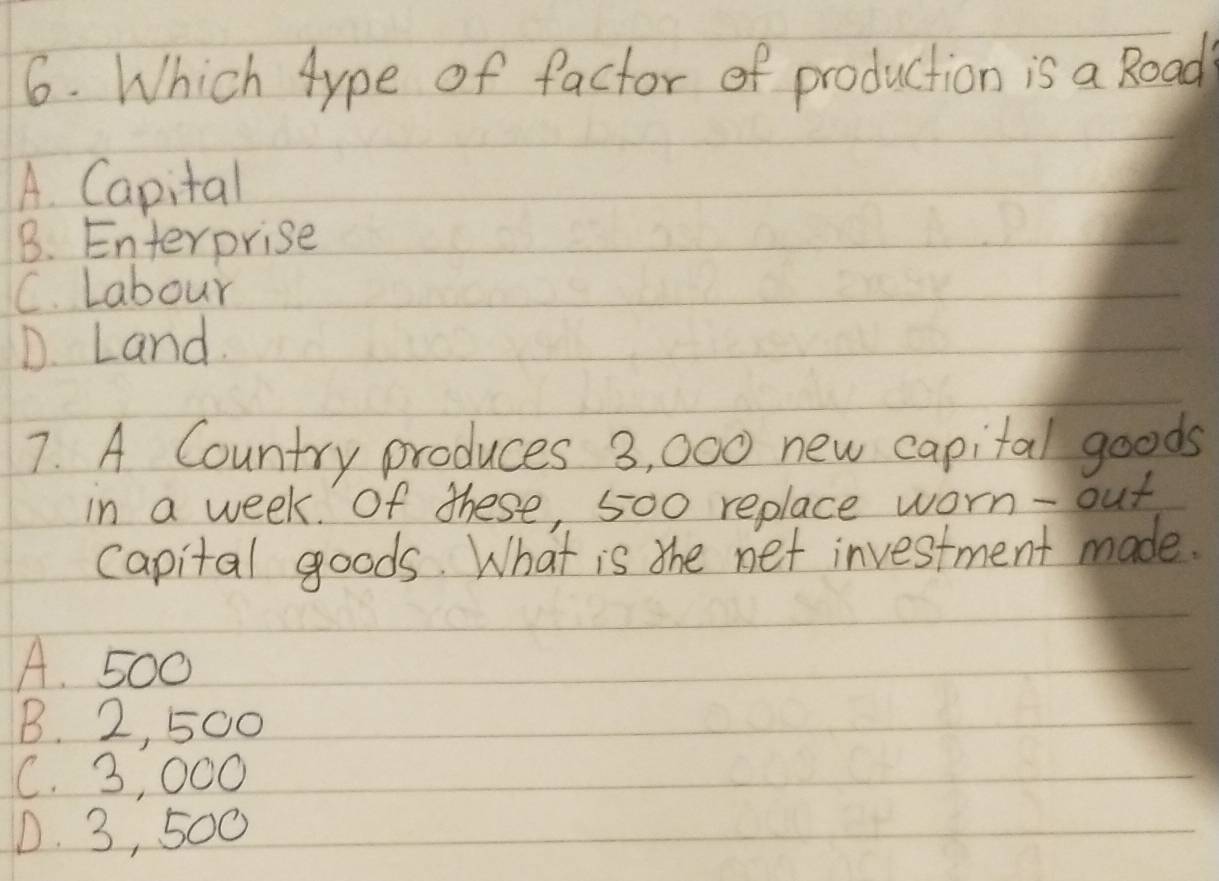 6. Which type of factor of production is a Road?
A. Capital
B. Enterprise
C. Labour
D. Land.
7. A Country produces 3,000 new capital goods
in a week. Of these, 500 replace worn-out
capital goods. What is the net investment made.
A. 500
B. 2,500
C. 3,000
D. 3,500